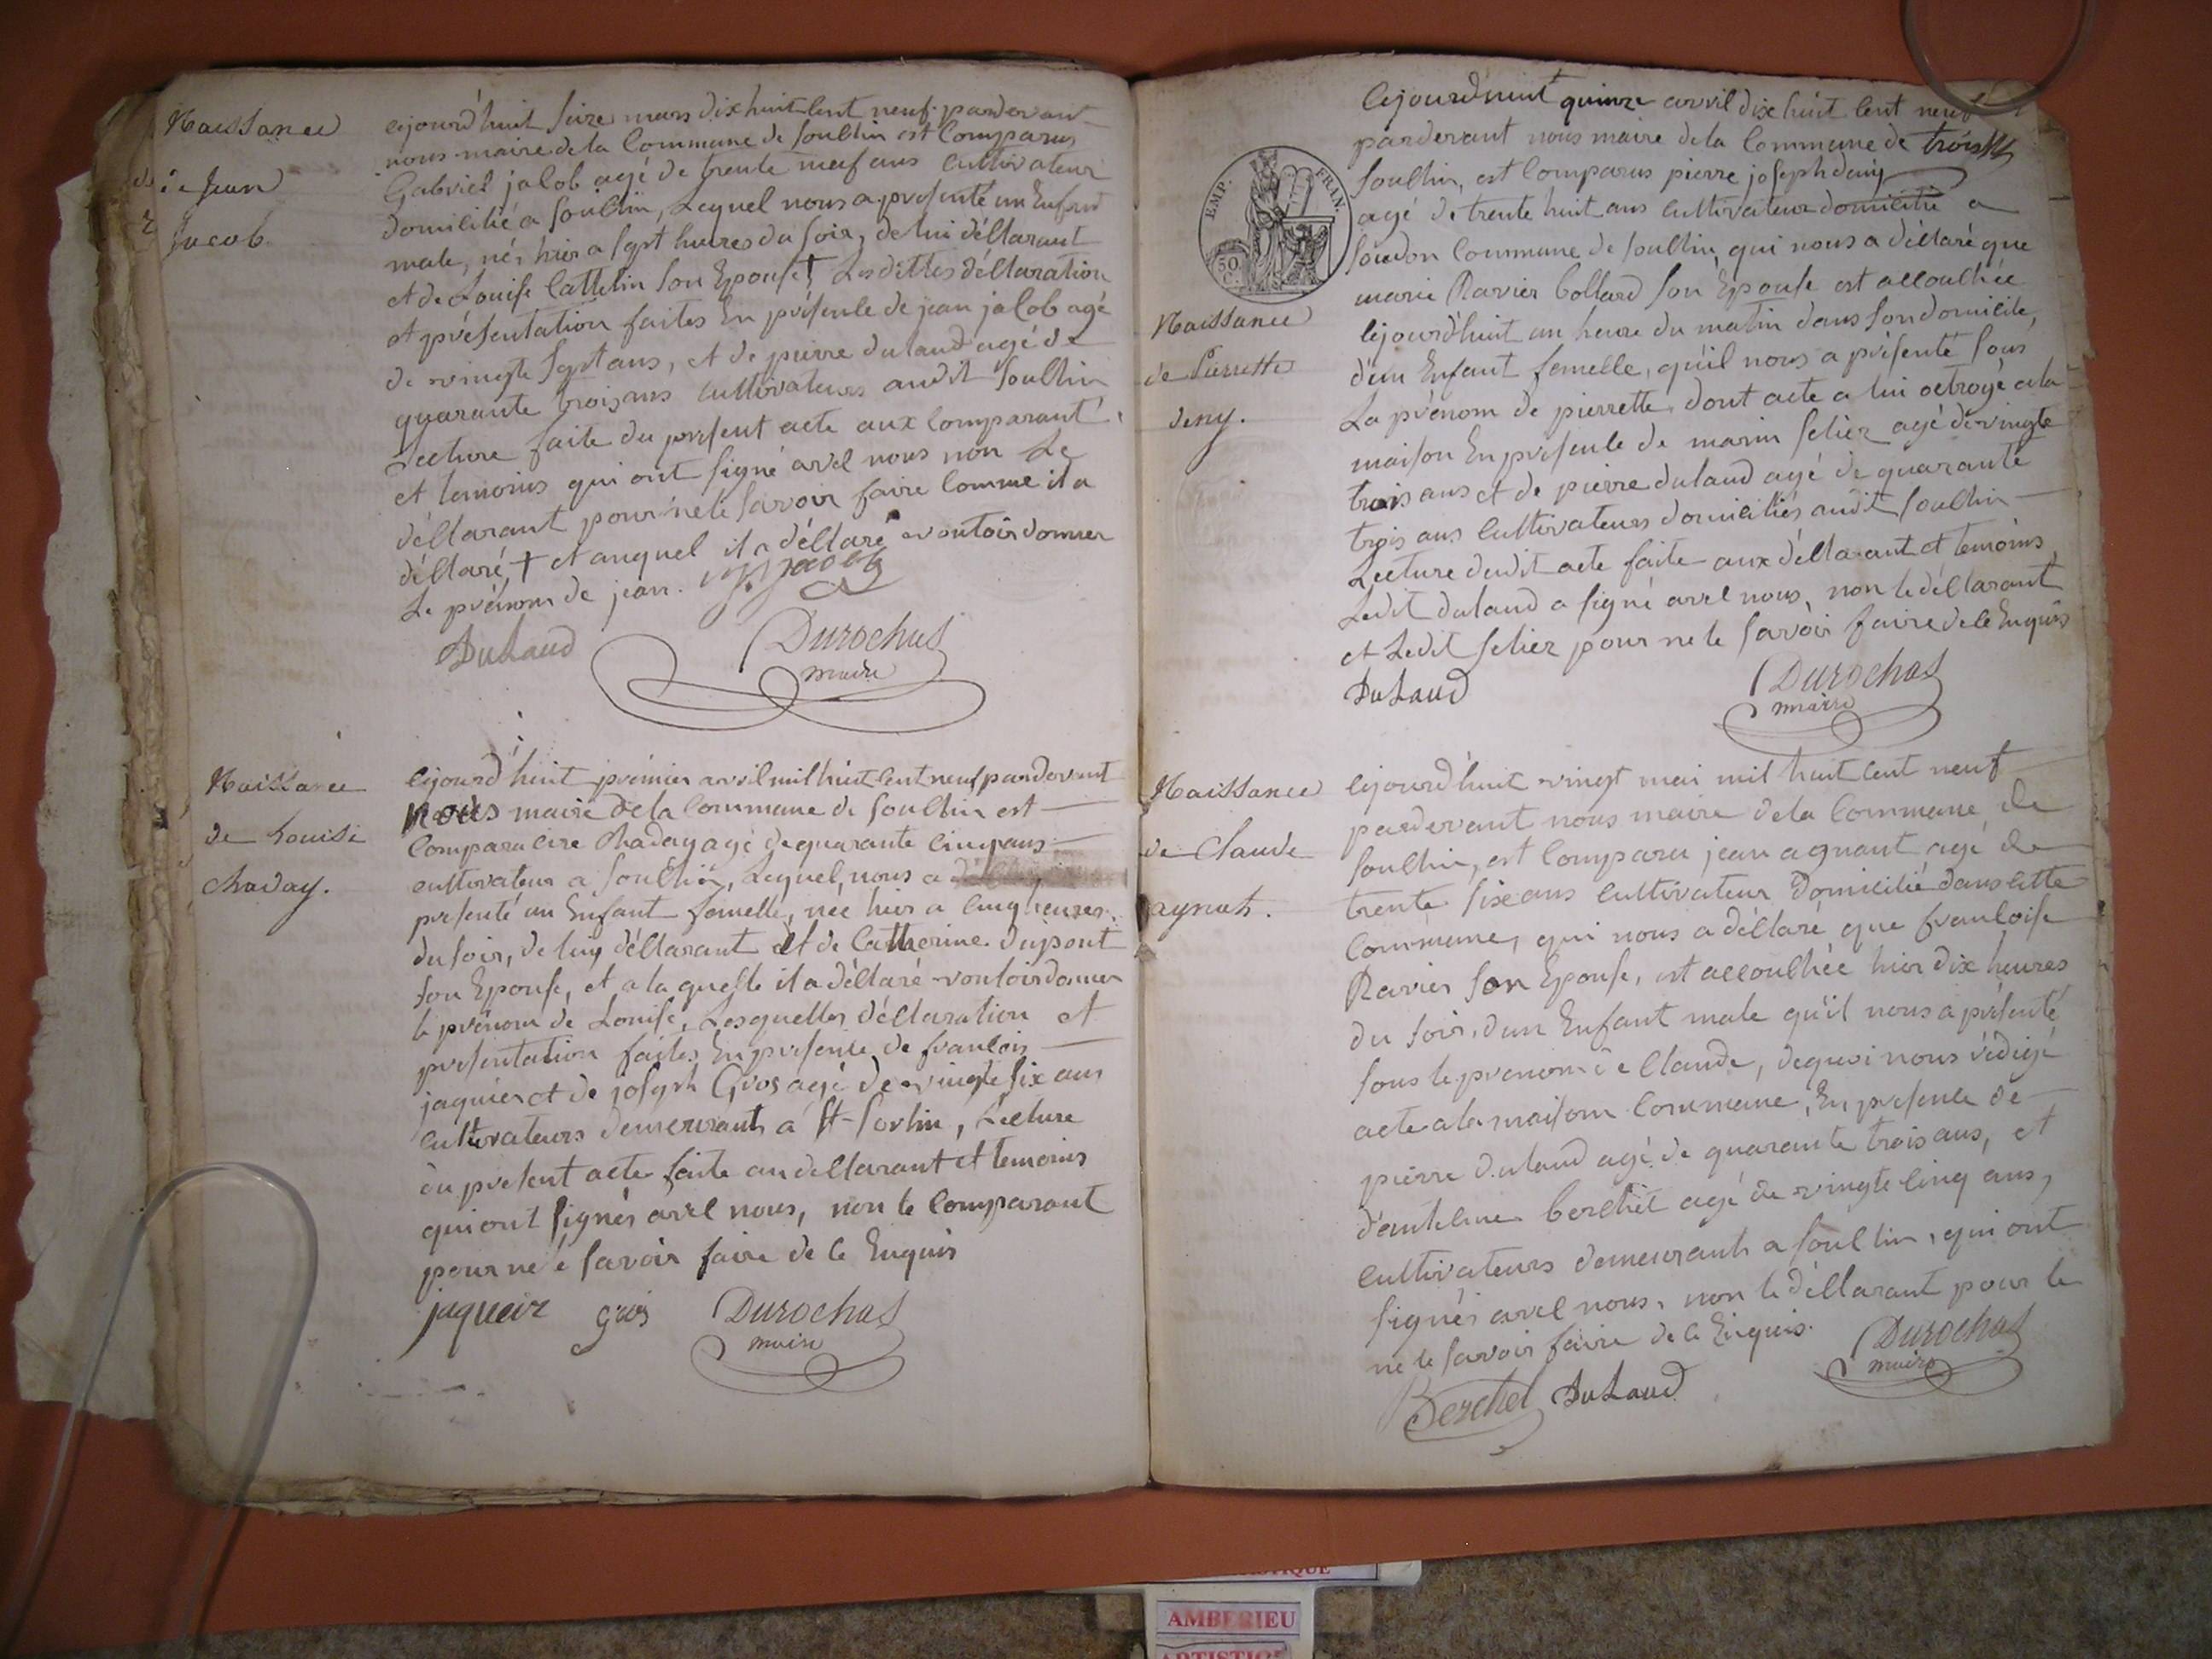 Naissance
de Jean
Jacob
cejourd'huit seize mars dix huit cent neuf pardevant
nous maire de la Commune de souclin est Comparus
Gabriel jacob agé de trente neuf ans cultivateur
domicilié a souclin, Lequel nous a présenté un Enfant
male, nés hier a sept heures du soir, de lui déclarant
et de Louise Cattelin son Epouse † Lesdittes déclaration
et présentation faites En présence de jean jacob agé
de vingte sept ans, et de pierre duland agé de
quarante trois ans cultivateurs audit souclin
Lecture faite du présent acte aux Comparant
et temoins qui ont signé avec nous non Le
déclarant pour ne le savoir faire Comme il a
déclaré, † et auquel il a déclaré voutoir donner
Le prénom de jean. jacob
DuLand Durochas
maire
Naissance
de Louise
chaday.
cejourd'huit prémier avril mil huit cent neuf pardevant
nous maire de la Commune de souclin est
Comparu Chaday agé de quarante cinq ans
cultivateur a souclin, Lequel, nous a
présenté un Enfant femelle, née hier a cinq heures
du soir, de luy déclarant et de Catherine dupont
son Epouse, et a laquelle il a déclaré voutoir donner
le prénom de Louise, Lesquelles déclaration et
présentation faites En présence de francois
jaquier et de joseph Gros agé de vingte six ans
cultivateurs demeurants a St-Sorlin, Lecture
du présent acte faite au déclarant et temoins
qui ont signés avec nous, non le Comparant
pour ne le savoir faire de ce Enquis
jaqueir gros Durochas
maire
EMP. FRAN.
50
C.
Naissance
de Pierrette
deny.
Cejourd'huit quinze avril dix huit cent neuf
pardevant nous maire de la Commune de
souclin, est Comparus pierre joseph deny
agé de trente huit ans cultivateur domicilié a
soudon Commune de souclin, qui nous a déclaré que
marie Ravier Collard son Epouse est accouchée
cejourd'huit un heure du matin dans son domicile,
d'un Enfant femelle, qu'il nous a présenté sous
La prénom de pierrette, dont acte a lui octroyé a la
maison En présence de marin selier agé de vingte
trois ans et de pierre duland agé de quarante
trois ans cultivateurs domiciliés audit souclin
Lecture dudit acte faite aux déclarant et temoins,
Ledit duland a signé avec nous, non le déclarant
et Ledit selier pour ne le savoir faire de ce Enquis
DuLand Durochas
maire
Naissance
de Claude
aynard.
cejourd'huit vingt mai mil huit cent neuf
pardevant nous maire de la Commune de
souclin, est Comparu jean agnant agé de
trente six ans cultivateur domicilié dans cette
Commune, qui nous a déclaré que francoise
Ravier son Epouse, est accouchée hier dix heures
du soir, d'un Enfant male qu'il nous a présenté
sous le prenom de Claude, dequoi nous rédigé
acte a la maison Commune, En présence de
pierre duland agé de quarante trois ans, et
d'antelme berchet agé de vingte cinq ans,
cultivateurs demeurants a souclin, qui ont
signés avec nous, non le déclarant pour le
ne le savoir faire de ce Enquis.
Berchet DuLand Durochas
maire
AMBERIEU
ARTISTIQUE